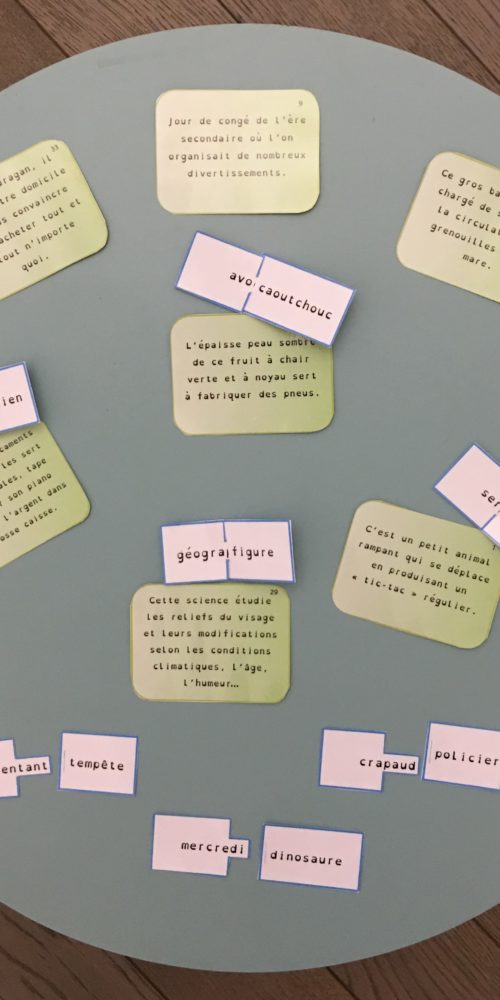 9
Jour de congé de l'ère
secondaire où l'on
organisait de nombreux
divertissements.
33
il
domicile
convaincre
acheter tout et
tout n'importe
quoi.
Ce gros
chargé de
la
grenouilles
mare.
caoutchouc
L'épaisse peau sombre
de ce fruit à chair
verte et à noyau sert
à fabriquer des pneus.
les sert
tape
son piano
l'argent dans
caisse.
C'est un petit animal
rampant qui se déplace
en produisant un
« tic-tac » régulier.
figure
29
Cette science étudie
les reliefs du visage
et leurs modifications
selon les conditions
climatiques, l'âge,
l'humeur…
tempête
crapaud policier
mercredi dinosaure